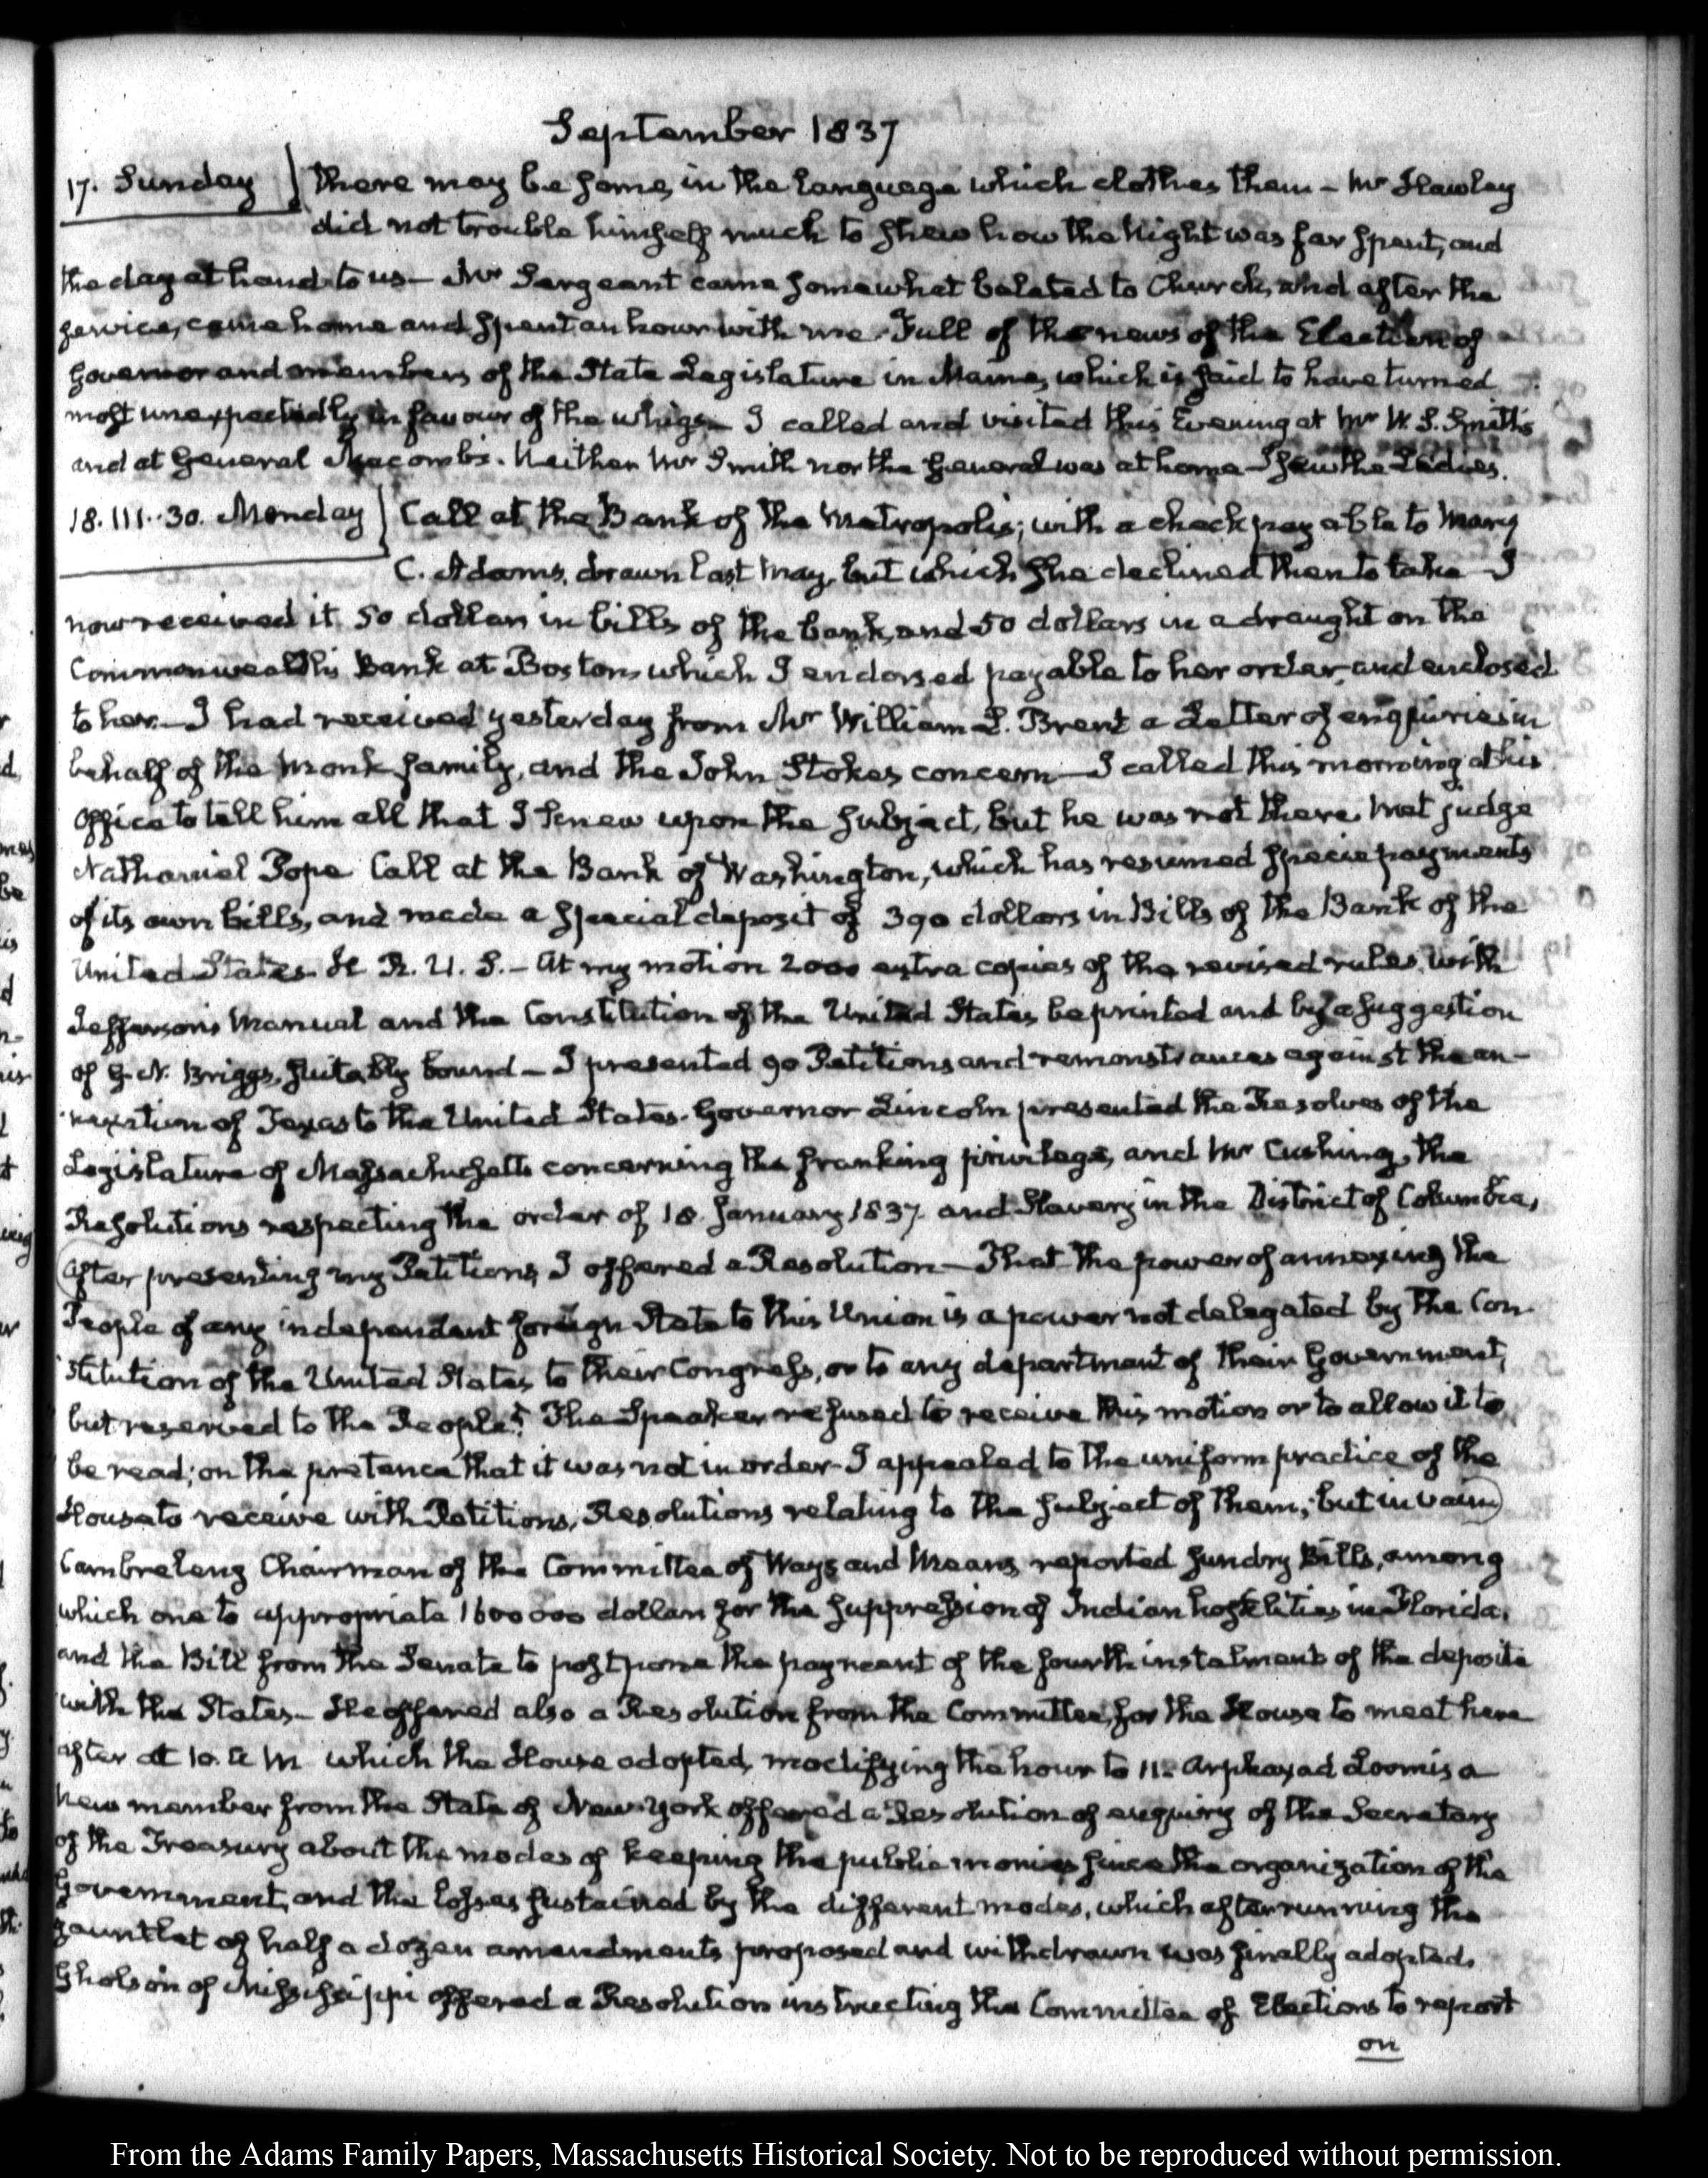 September 1837
17. Sunday } There may be some, in the language which clothes them – Mr Hawley
did not trouble himself much to shew how the Night was far spent, and
the day at hand to us – Mr Sergeant came somewhat belated to Church, and after the
service, came home and spent an hour with me. Full of the news of the Election of
Governor and members of the State Legislature in Maine, which is said to have turned
most unexpectedly in favour of the whigs – I called and visited this Evening at Mr W. S. Smith's
and at General Macomb's. Neither Mr Smith nor the General was at home – I saw the Ladies.
18. III..30. Monday } Call at the Bank of the Metropolis; with a check payable to Mary
C. Adams, drawn last May, but which she declined then to take – I
now received it 50 dollars in bills of the bank, and 50 dollars in a draught on the
Commonwealth's Bank at Boston which I endorsed payable to her order, and enclosed
to her. – I had received yesterday from Mr William L. Brent a Letter of enquiries in
behalf of the Monk family, and the John Stokes concern – I called this morning at his
Office to tell him all that I knew upon the subject, but he was not there. Met judge
Nathaniel Pope Call at the Bank of Washington, which has resumed specie payments
of its own bills, and made a special deposit of 390 dollars in Bills of the Bank of the
United States H. R. U. S. – At my motion 2000 extra copies of the revised rules, with
Jefferson's Manual and the Constitution of the United States be printed and by a suggestion
of G. N. Briggs, suitably bound – I presented 90 Petitions and remonstrances against the an-
nexation of Texas to the United States. Governor Lincoln presented the Resolves of the
Legislature of Massachusetts concerning the franking privilege, and Mr Cushing, the
Resolutions respecting the order of 18. January 1837. and Slavery in the District of Columbia,
After presenting my Petitions, I offered a Resolution – That the power of annexing the
People of any independent foreign State to this Union is a power not delegated by the Con-
stitution of the United States, to their Congress, or to any department of their Government,
but reserved to the People. The Speaker refused to receive this motion or to allow it to
be read; on the pretence that it was not in order – I appealed to the uniform practice of the
House to receive with Petitions, Resolutions relating to the subject of them; but in vain
Cambreleng Chairman of the Committee of Ways and Means, reported sundry Bills, among
which one to appropriate 1600000 dollars for the suppression of Indian hostilities in Florida,
and the Bill from the Senate to postpone the payment of the fourth instalment of the deposite
with the States – He offered also a Resolution from the Committee, for the House to meet here
after at 10. A M which the House adopted, modifying the hour to 11 – Arphaxad Loomis a
new member from the State of New-York offered a Resolution of enquiry of the Secretary
of the Treasury about the modes of keeping the public monies since the organization of the
Government, and the losses sustained by the different modes, which after running the
gauntlet of half a dozen amendments, proposed and withdrawn was finally adopted.
Gholson of Mississippi offered a Resolution instructing the Committee of Elections to report
on
From the Adams Family Papers, Massachusetts Historical Society. Not to be reproduced without permission.